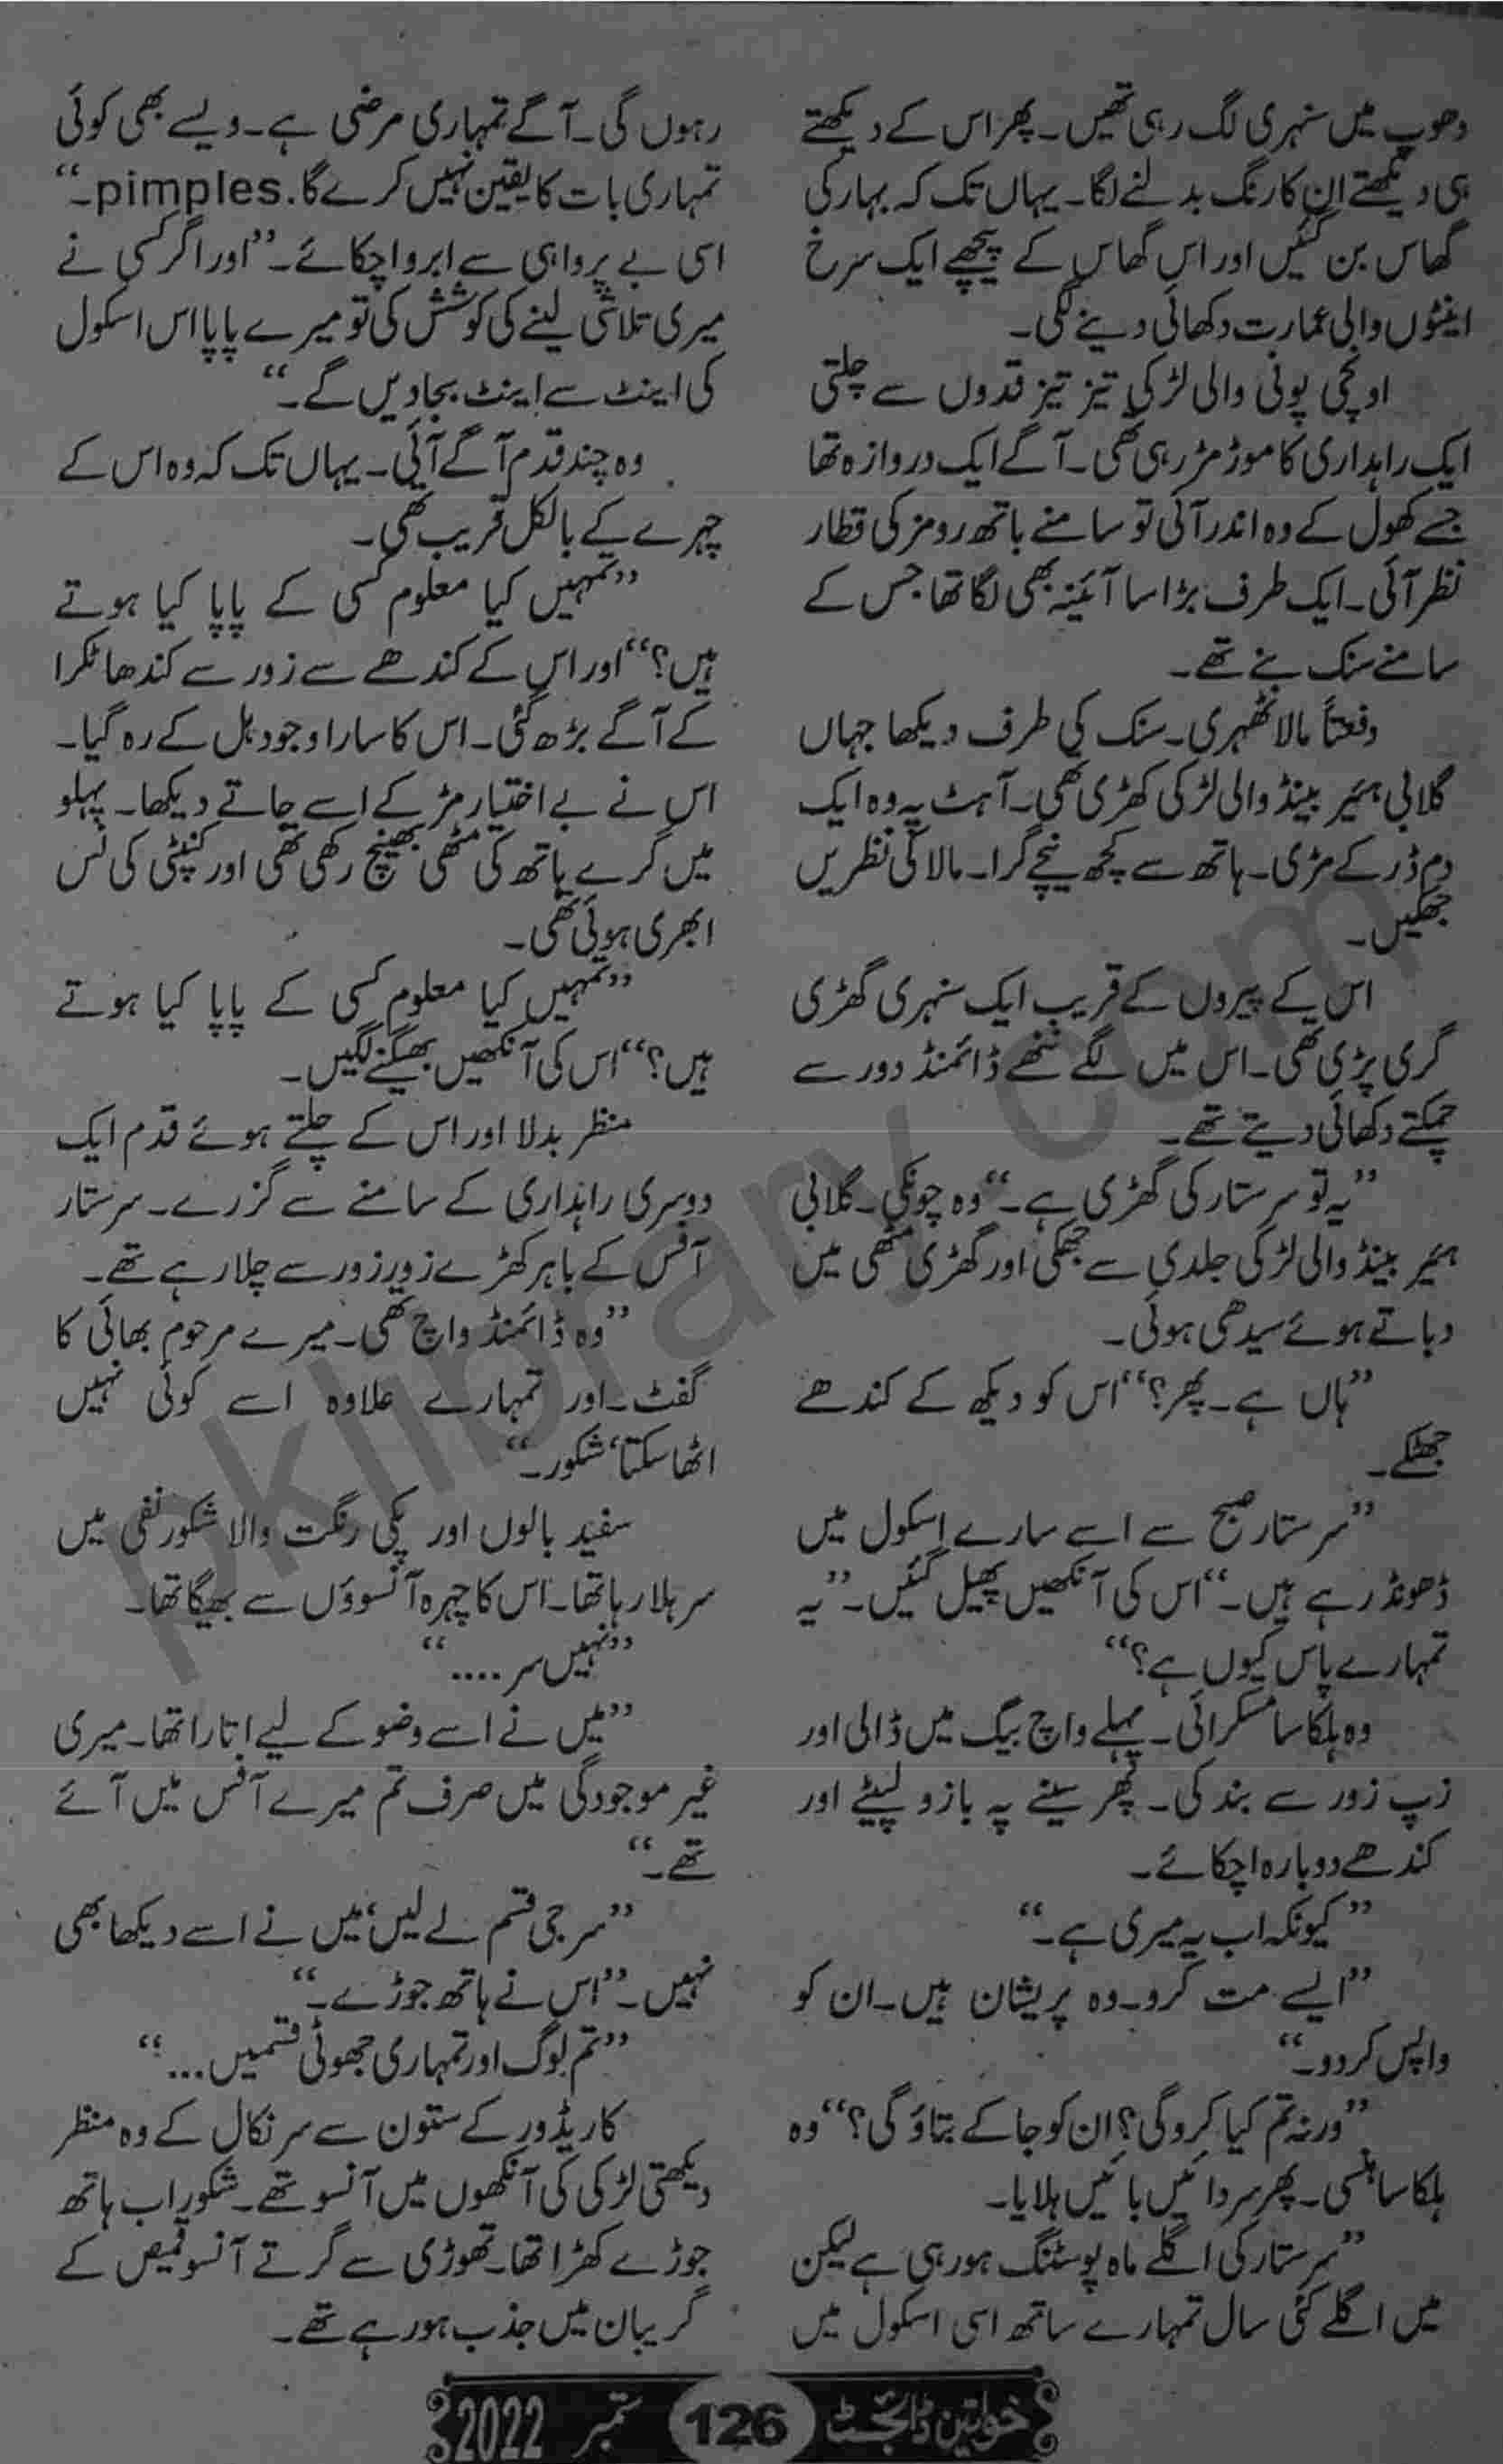 دھوپ میں سنہری لگ رہی تھیں۔ پھر اس کے دیکھتے
ہی دیکھتے ان کا رنگ بدلنے لگا۔ یہاں تک کہ بہار کی
گھاس بن گئیں اور اس گھاس کے پیچھے ایک سرخ
اینٹوں والی عمارت دکھائی دینے لگی۔
اونچی پونی والی لڑکی تیز تیز قدموں سے چلتی
ایک راہداری کا موڑ مڑ رہی تھی۔ آگے ایک دروازہ تھا
جسے کھول کے وہ اندر آئی تو سامنے باتھ رومز کی قطار
نظر آئی۔ ایک طرف بڑا سا آئینہ بھی لگا تھا جس کے
سامنے سنک بنے تھے۔
دفعتاً مالا ٹھہری۔ سنک کی طرف دیکھا جہاں
گلابی ہئیر بینڈ والی لڑکی کھڑی تھی۔ آہٹ پہ وہ ایک
دم ڈر کے مڑی۔ ہاتھ سے کچھ نیچے گرا۔ مالا کی نظریں
جھکیں۔
اس کے پیروں کے قریب ایک سنہری گھڑی
گری پڑی تھی۔ اس میں لگے ننھے ڈائمنڈ دور سے
چمکتے دکھائی دیتے تھے۔
”یہ تو سر ستار کی گھڑی ہے۔“ وہ چونکی۔ گلابی
ہئیر بینڈ والی لڑکی جلدی سے جھکی اور گھڑی مٹھی میں
دباتے ہوئے سیدھی ہوئی۔
”ہاں ہے۔ پھر؟“ اس کو دیکھ کے کندھے
جھٹکے۔
”سر ستار صبح سے اسے سارے اسکول میں
ڈھونڈ رہے ہیں۔“ اس کی آنکھیں پھیل گئیں۔ ”یہ
تمہارے پاس کیوں ہے؟“
وہ ہلکا سا مسکرائی۔ پہلے واچ بیگ میں ڈالی اور
زپ زور سے بند کی۔ پھر سینے پہ بازو لپیٹے اور
کندھے دوبارہ اچکائے۔
”کیونکہ اب یہ میری ہے۔“
”ایسے مت کرو۔ وہ پریشان ہیں۔ ان کو
واپس کر دو۔“
”ورنہ تم کیا کرو گی؟ ان کو جا کے بتاؤ گی؟“ وہ
ہلکا سا ہنسی۔ پھر سر دائیں بائیں ہلایا۔
”سر ستار کی اگلے ماہ پوسٹنگ ہو رہی ہے لیکن
میں اگلے کئی سال تمہارے ساتھ اسی اسکول میں
رہوں گی۔ آگے تمہاری مرضی ہے۔ ویسے بھی کوئی
تمہاری بات کا یقین نہیں کرے گا۔ pimples.“
اسی بے پرواہی سے ابرو اچکائے۔ ”اور اگر کسی نے
میری تلاشی لینے کی کوشش کی تو میرے پاپا اس اسکول
کی اینٹ سے اینٹ بجا دیں گے۔“
وہ چند قدم آگے آئی۔ یہاں تک کہ وہ اس کے
چہرے کے بالکل قریب تھی۔
”تمہیں کیا معلوم کسی کے پاپا کیا ہوتے
ہیں؟“ اور اس کے کندھے سے زور سے کندھا ٹکرا
کے آگے بڑھ گئی۔ اس کا سارا وجود ہل کے رہ گیا۔
اس نے بے اختیار مڑ کے اسے جاتے دیکھا۔ پہلو
میں گرے ہاتھ کی مٹھی بھینچ رکھی تھی اور کنپٹی کی نس
ابھری ہوئی تھی۔
”تمہیں کیا معلوم کسی کے پاپا کیا ہوتے
ہیں؟“ اس کی آنکھیں بھیگنے لگیں۔
منظر بدلا اور اس کے چلتے ہوئے قدم ایک
دوسری راہداری کے سامنے سے گزرے۔ سر ستار
آفس کے باہر کھڑے زور زور سے چلا رہے تھے۔
”وہ ڈائمنڈ واچ تھی۔ میرے مرحوم بھائی کا
گفٹ۔ اور تمہارے علاوہ اسے کوئی نہیں
اٹھا سکتا‘ شکور۔“
سفید بالوں اور پکی رنگت والا شکور نفی میں
سر ہلا رہا تھا۔ اس کا چہرہ آنسوؤں سے بھیگا تھا۔
”نہیں سر ....“
”میں نے اسے وضو کے لیے اتارا تھا۔ میری
غیر موجودگی میں صرف تم میرے آفس میں آئے
تھے۔“
”سر جی قسم لے لیں‘ میں نے اسے دیکھا بھی
نہیں۔“ اس نے ہاتھ جوڑے۔“
”تم لوگ اور تمہاری جھوٹی قسمیں...“
کاریڈور کے ستون سے سر نکال کے وہ منظر
دیکھتی لڑکی کی آنکھوں میں آنسو تھے۔ شکور اب ہاتھ
جوڑے کھڑا تھا۔ تھوڑی سے گرتے آنسو قمیص کے
گریبان میں جذب ہو رہے تھے۔
خواتین ڈائجسٹ 126 ستمبر 2022
pklibrary.com